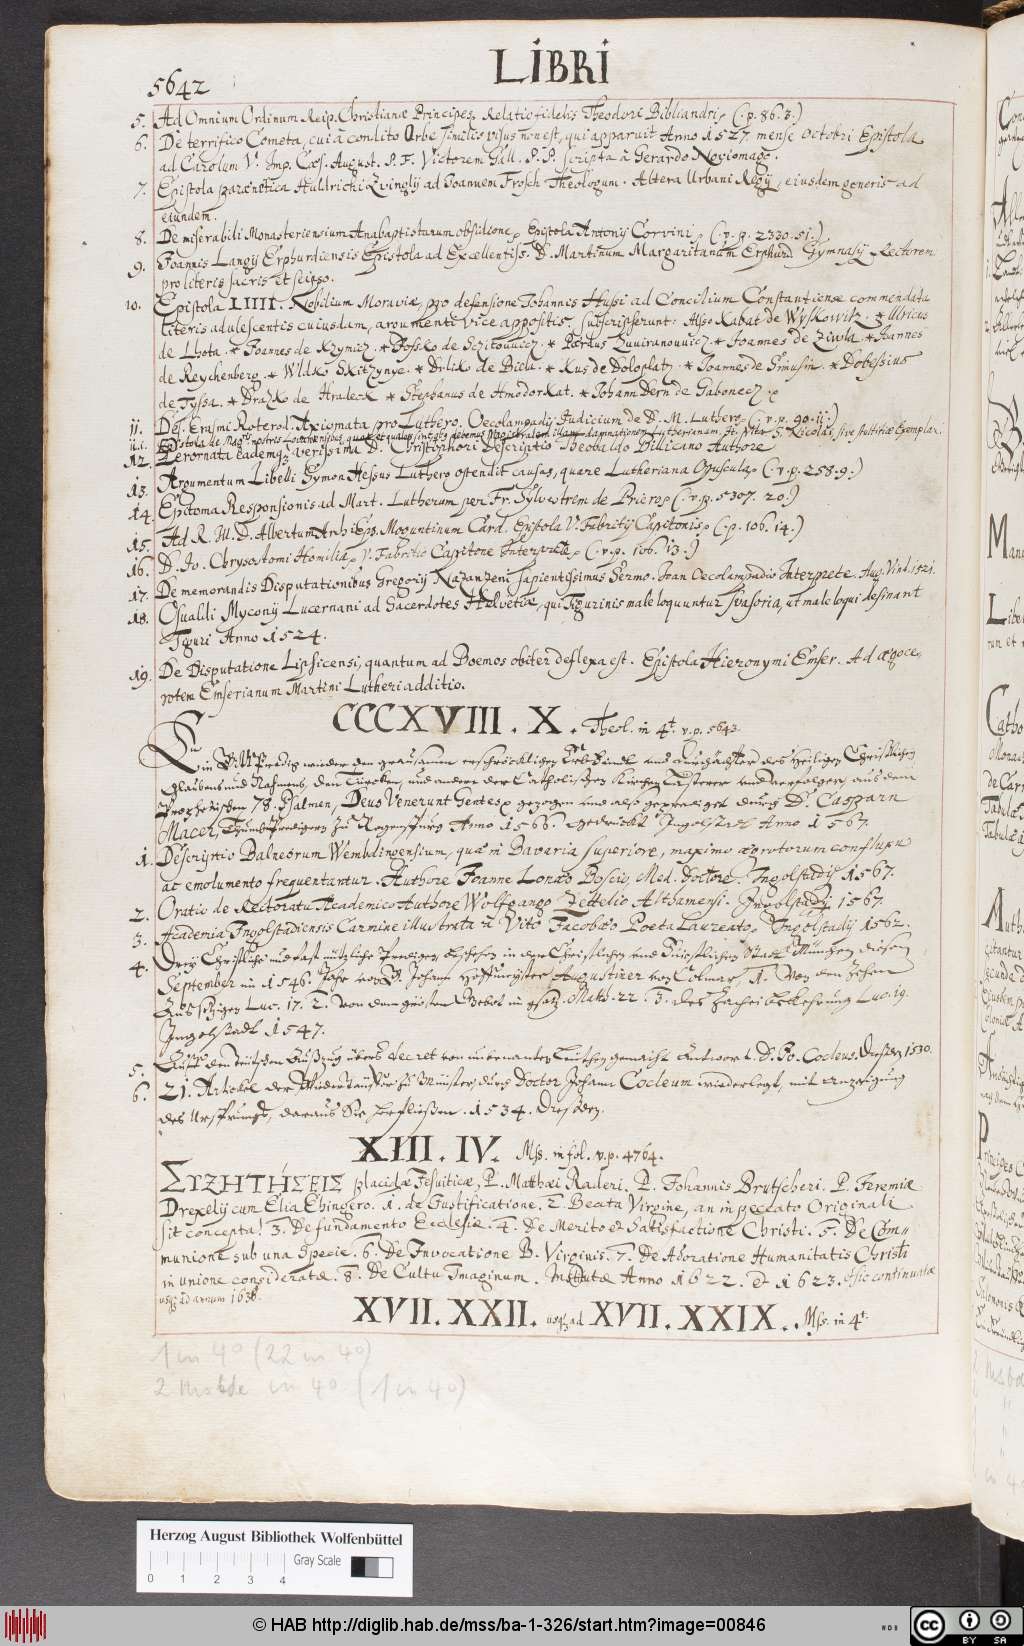 LIBRI
5642
5. Ad Omnium Ordinum Reip. Christianæ Principes, Relatio fidelis Theodori Bibliandri, (: p. 86. 3.)
6. De terrifico Cometa, cui à condito Orbe similis visus non est, qui apparuit Anno 1527. mense Octobri Epistola
ad Carolum V. Imp. Cæs. August. P. F. Victorem Gall. P. P. scripta à Gerardo Noviomago.
7. Epistola parænetica Huldrichi Zvinglij ad Joannem Frosch Theologum. Altera Urbani Regij, eiusdem generis ad
eundem.
8. De miserabili Monasteriensium Anabaptistarum obsidione, Epistola Antonij Corvini, (: v. p. 2330. 51.)
9. Joannis Langij Erphurdiensis Epistola ad Excellentiss. D. Martinum Margaritanum Erphurd Gymnasij Rectorem
pro literis sacris et seipso.
10. Epistola LIIII. Nobilium Moraviæ, pro defensione Johannis Hussi ad Concilium Constantiense commendata
literis adulescentis cuiusdam, argumenti vice appositis. Subscripserunt: Alsso Kabat de Wyskowitz. * Ulricus
de Lhota. * Joannes de Kzymicz. * Jossko de Sczitowicz. * Pærdus Zwiranowicz. * Joannes de Ziwla. * Joannes
de Reychenberg. * Wldko Skitzynye. * Drliko de Biela. * Kus de Doloplatz. * Joannes de Simusin. * Dobessius
de Tyssa. * Drazko de Hradeck * Stephanus de Hmodorkat. * Johann Dern de Gabonecz
11. Des. Erasmi Roterod. Axiomata pro Luthero. Oecolampadij Judicium de D. M. Luthero, (: v. p. 90. 11.)
11.i. Epistola de Magris nostris Lovaniensibus, quot et quales sint, quibus debemus Magistralem illam damnationem Lutheranam. It. Vita S. Nicolai, sive stultitiæ Exemplar.
12. Perornata eademq. verissima D. Christophori Descriptio Theobaldo Billicano Authore
13. Argumentum Libelli Symon Hessus Luthero ostendit causas, quare Lutheriana Opuscula, (: v. p. 258. 9.)
14. Epitoma Responsionis ad Mart. Lutherum per Fr. Sylvestrem de Prierop (: v. p. 5307. 20.)
15. Ad R. M. D. Albertum Archiēps. Moguntinum Card. Epistola V. Fabritij Capitonis, (: p. 106. 14.)
16. D. Io. Chrysostomi Homilia, V. Fabritio Capitone Interprete, (: v. p. 106. 13.)
17. De memorandis Disputationibus Gregorij Nazanzeni sapientissimus Sermo. Ioan Oecolampadio Interprete. Aug. Vind. 1521.
18. Osualdi Myconij Lucernani ad Sacerdotes Helvetiæ, qui Tigurinis male loquuntur Suasoria, ut male loqui desinant
Tiguri Anno 1524.
19. De Disputatione Lipsicensi, quantum ad Boemos obiter deflexa est. Epistola Hieronymi Emser. Ad ægoce-
rotem Emserianum Martini Lutheri additio.
CCCXVIII. X. Theol. in 4t. v. p. 5643.
Ein Predig wieder den grausamen erschröcklichen Erbfeindt und Durchächter des heiligen Christlichen
Glaubens und Nahmens, den Türcken, und andere der Catholischen Kirchen Lästerer und Verfolger, aus dem
Prophetischen 78. Psalmen, Deus Venerunt Gentes, gezogen und also geprediget durch Dr. Casparn
Macer, Thumbpredigern zu Regenspurg Anno 1566. gedruckt Ingolstadt Anno 1567.
1. Descriptio Balneorum Wembdingensium, quæ in Bavaria superiore, maximo ægrotorum conflûxu
ac emolumento frequentantur. Authore Joanne Lonæo Boscio, Med. Doctore. Ingolstadij 1567.
2. Oratio de Rectoratu Academico Authore Wolfgango Zettelio Althamensi. Ingolstadij 1567.
3. Academia Ingolstadiensis Carmine illustrata à Vito Jacobæo Poeta Laureato, Ingolstadij 1562.
4. Drey Christliche und fast nützliche Predigen beschehen in der Christlichen und Fürstlichen Stadt München diesen
September im 1546. Jahr von Johann Hoffmeyster Augustiner von Colmar, 1. Von den zehen
Aussetzigen Luc. 17. 2. von dem grösten Gebot im gsetz Math. 22. 3. des Zachei bekehrung Luc. 19.
Ingolstadt 1547.
5. Auff den teutschen Auszug übers Decret von unbenanten Leuthen gemacht Antwort. D. Jo. Cocleus. Dresden 1530.
6. 21. Artickel der Widerteuffer zu Münster, durch Doctor Johann Cocleum wiederlegt, mit anzeigung
des Ursprungs, daraus Sie herfliessen. 1534. Dresden.
XIII. IV. Mss. in fol. v. p. 4764.
ΣΥΖΗΤΉΣΕΙΣ placidæ Jesuiticæ, P. Matthæi Raderi. P. Johannis Brutscheri. P. Jeremiæ
Drexelij cum Elia Ehingero. 1. de Justificatione. 2. Beata Virgine, an in peccato Originali
sit concepta! 3. De fundamento Ecclesiæ. 4. De Merito et Satisfactione Christi. 5. De Com-
munione sub una Specie. 6. De Invocatione B. Virginis. 7. De Adoratione Humanitatis Christi
in unione consideratæ. 8. De Cultu Imaginum. Institutæ Anno 1622. et 1623. Hic continuatæ
usq; ad annum 1636.
XVII. XXII. usq; ad XVII. XXIX. Mss. in 4t.
1 in 4° (22 in 4°)
2 in 4° (1 in 4°)
Herzog August Bibliothek Wolfenbüttel
Gray Scale
0 1 2 3 4
© HAB http://diglib.hab.de/mss/ba-1-326/start.htm?image=00846
cc BY SA